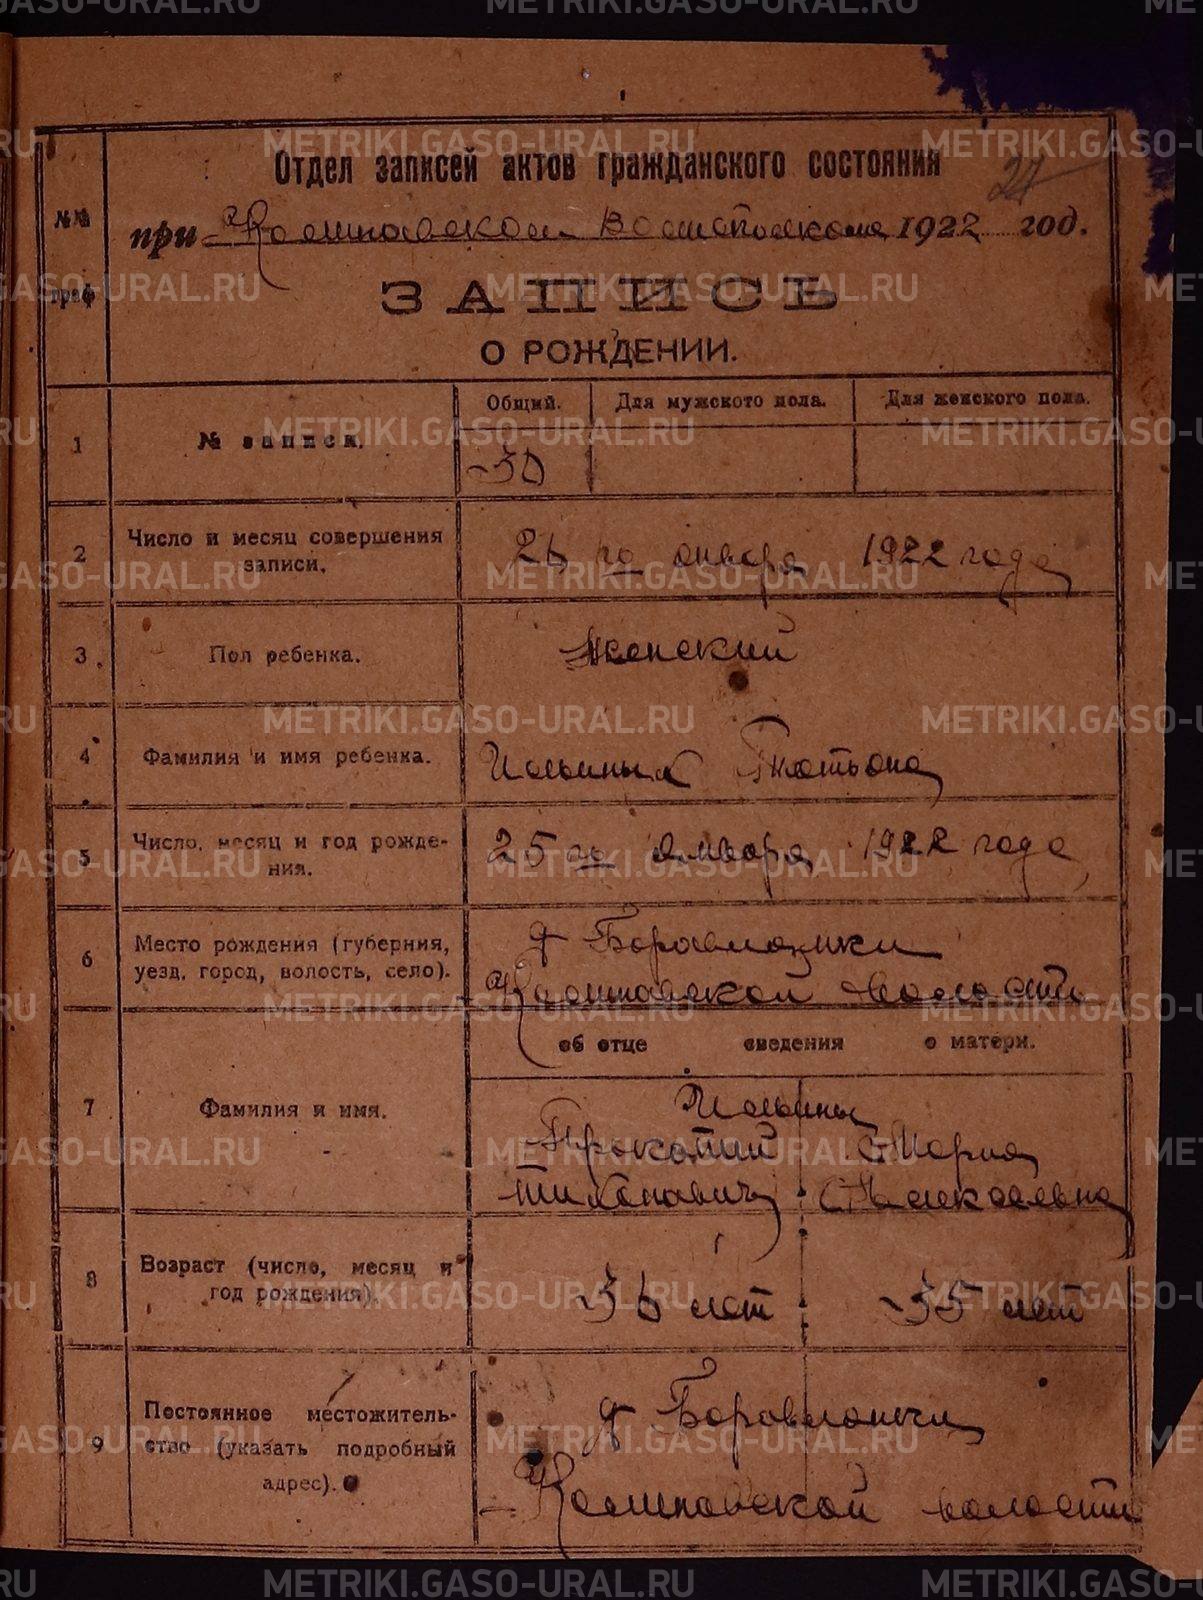 Отдел записей актов гражданского состояния
при 1922 год.
№№ граф
ЗАПИСЬ
О РОЖДЕНИИ.
Общий. Для мужского пола. Для женского пола.
1 № записи. 30
2 Число и месяц совершения записи. 26 го января 1922 года
3 Пол ребенка. Женский
4 Фамилия и имя ребенка. Ильиных Татьяна
5 Число, месяц и год рожде-
ния. 25 го января 1922 года
6 Место рождения (губерния, д
уезд, город, волость, село). волости
об отце сведения о матери.
Ильины
7 Фамилия и имя. Прокопий Мария
Тихонович
8 Возраст (число, месяц и
год рождения). 36 лет 35 лет
9 Постоянное местожитель-
ство (указать подробный
адрес). д
волости
METRIKI.GASO-URAL.RU